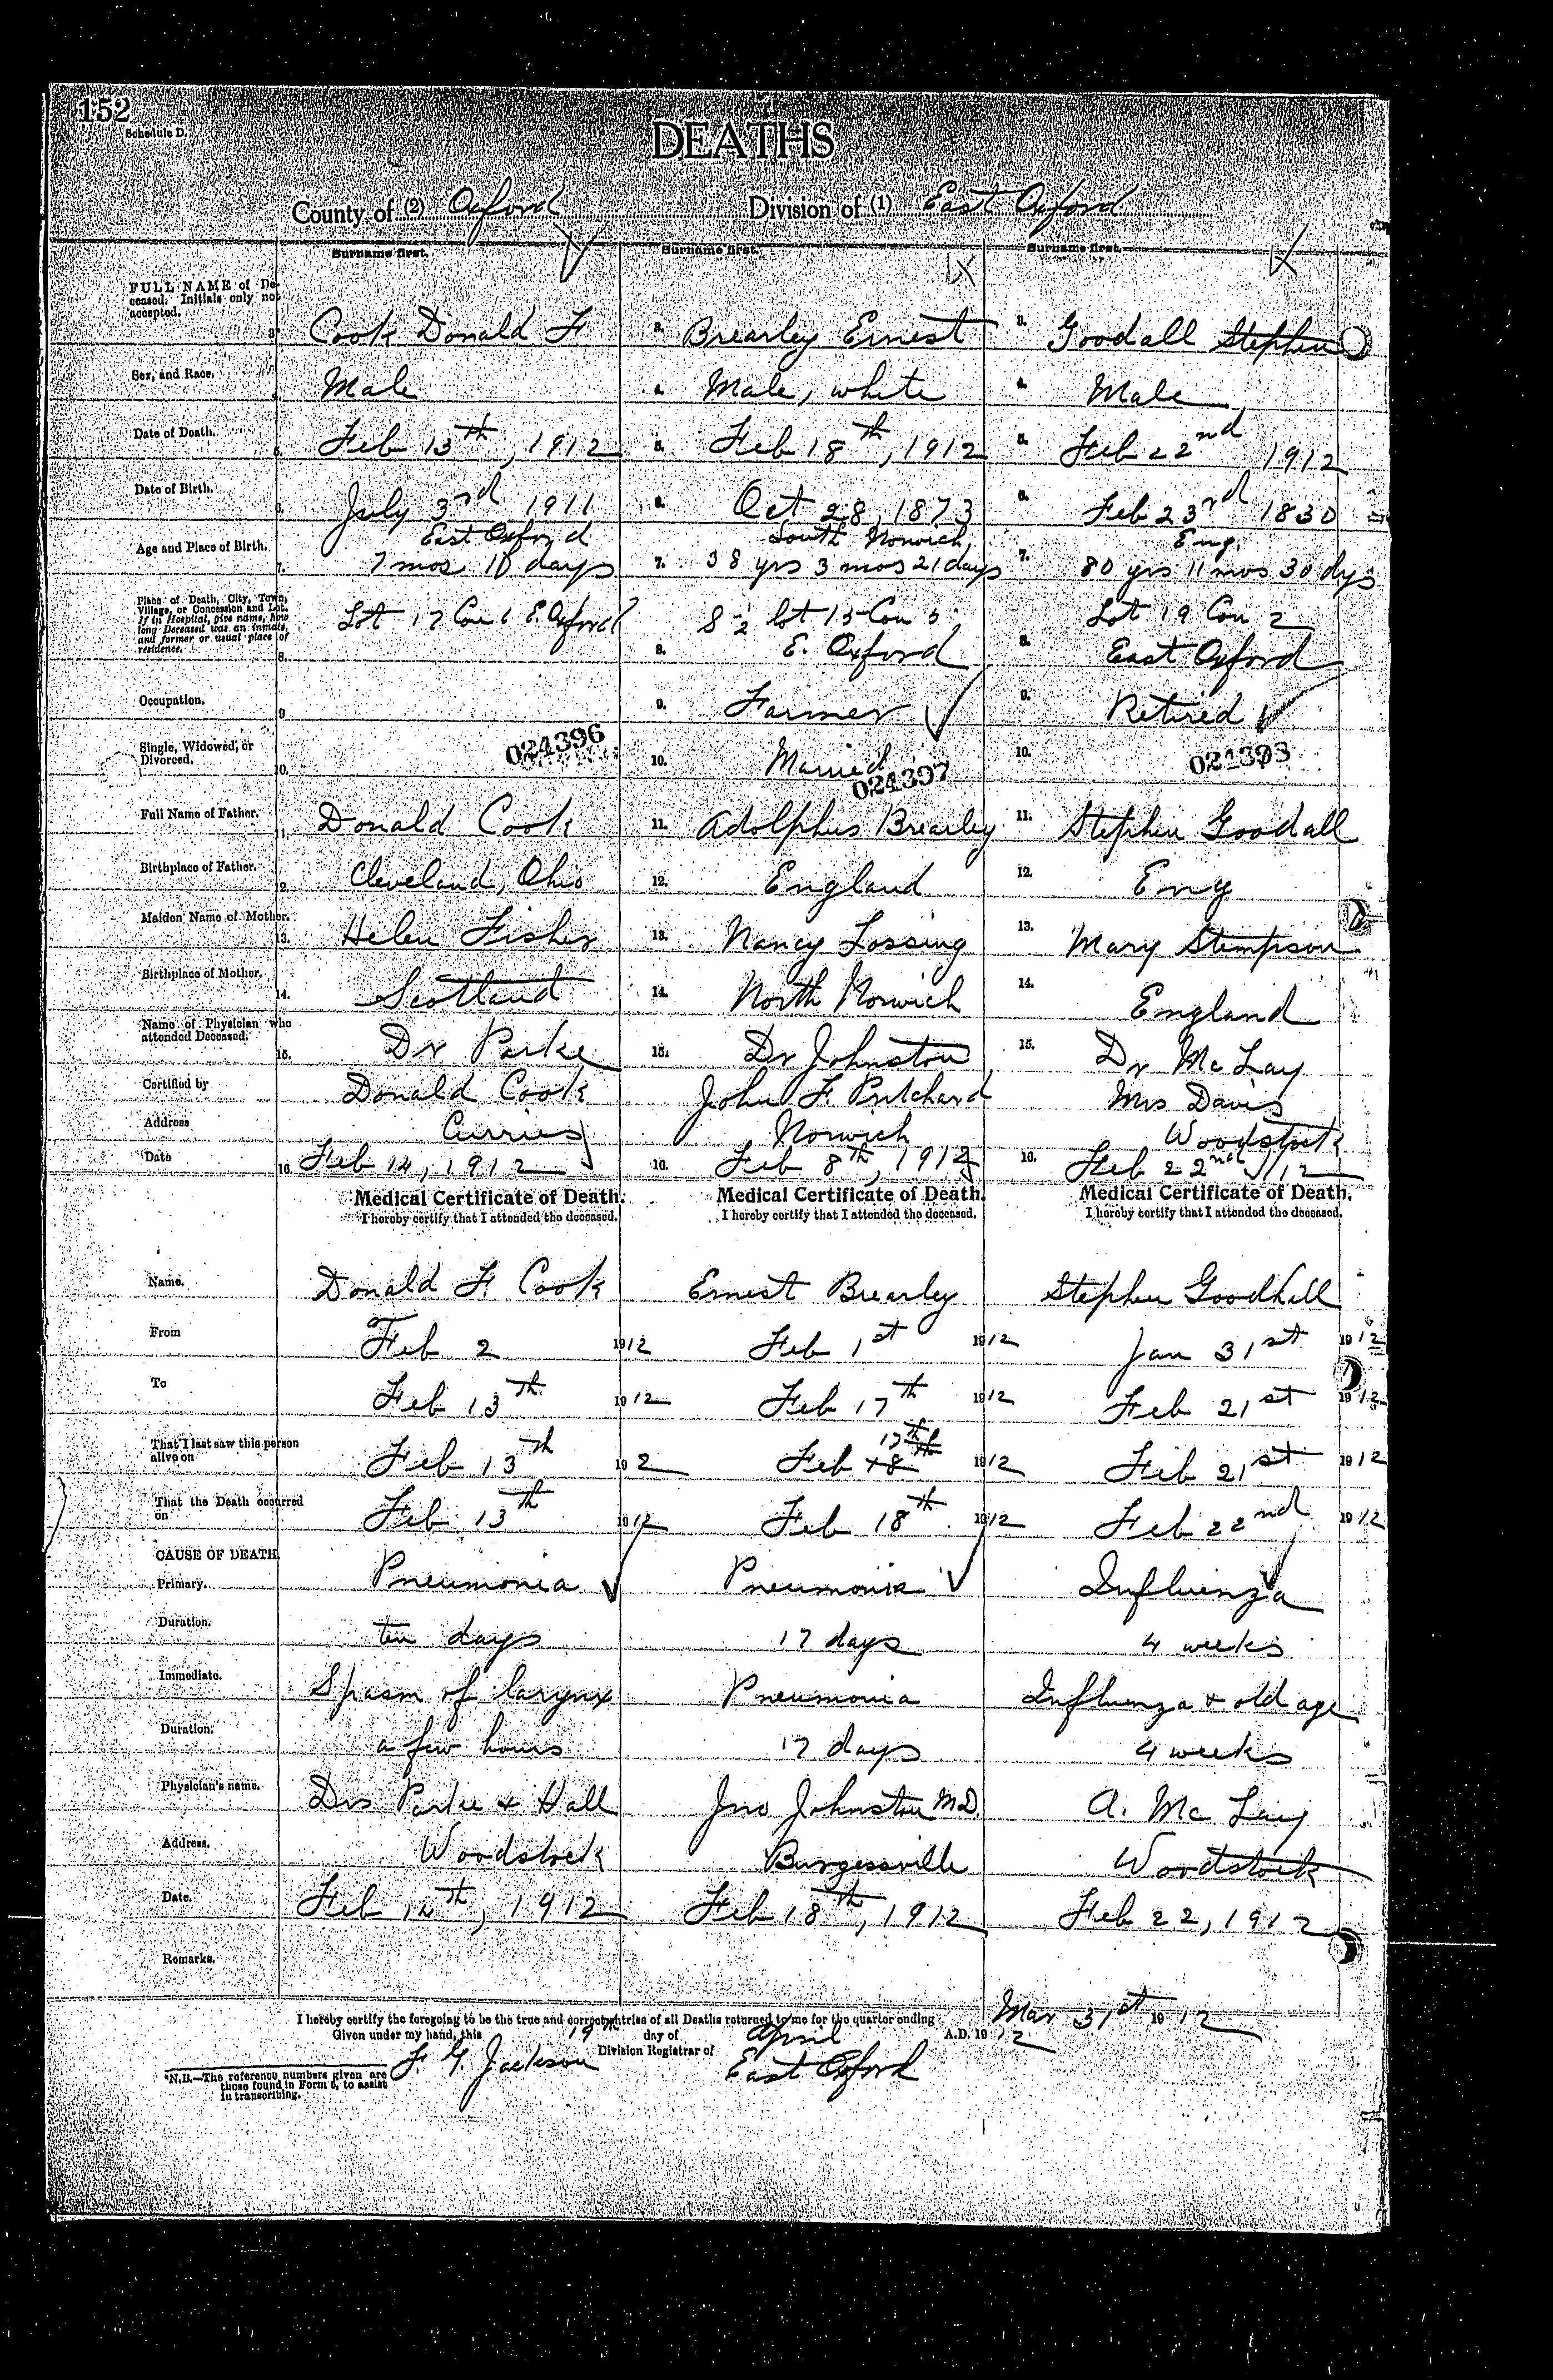 152
Schedule D.
DEATHS
County of (2) Oxford Division of (1) East Oxford
Surname first. Surname first. Surname first.
FULL NAME of De-
ceased. Initials only not
accepted.
3. Cook Donald F 3. Brearley Ernest 3. Goodall Stephen
Sex, and Race. Male 4. Male, white 4. Male
Date of Death. Feb 13th, 1912 5. Feb 18th, 1912 5. Feb 22nd 1912
Date of Birth. July 3rd 1911 6. Oct 28, 1873 6. Feb 23rd 1830
East Oxford South Norwich Eng.
Age and Place of Birth. 7. 7 mos 10 days 7. 38 yrs 3 mos 21 days 7. 80 yrs 11 mos 30 dys
Place of Death, City, Town,
Village, or Concession and Lot.
If in Hospital, give name, how
long Deceased was an inmate,
and former or usual place of
residence.
8. Lot 17 Con 6 E. Oxford S 1/2 lot 15 Con 5 Lot 19 Con 2
8. E. Oxford 8. East Oxford
Occupation. 9 9. Farmer 9. Retired
Single, Widowed, or
Divorced.
10. 024396 10. Married 024397 10.
Full Name of Father. Donald Cook 11. Adolphus Brearley 11. Stephen Goodall
Birthplace of Father. Cleveland, Ohio 12. England 12. Eng
Maiden Name of Mother. 13. Helen Fisher 13. Nancy Lossing 13. Mary Stempson
Birthplace of Mother. 14. Scotland 14. North Norwich 14. England
Name of Physician who
attended Deceased.
15. Dr Parke 15. Dr Johnston 15. Dr McLay
Certified by Donald Cook John F. Pritchard Mrs Davis
Address Curries Norwich Woodstock
Date 16. Feb 14, 1912 16. Feb 8th, 1912 16. Feb 22nd 1912
Medical Certificate of Death. Medical Certificate of Death. Medical Certificate of Death.
I hereby certify that I attended the deceased. I hereby certify that I attended the deceased. I hereby certify that I attended the deceased.
Name. Donald F. Cook Ernest Brearley Stephen Goodhall
From Feb 2 1912 Feb 1st 1912 Jan 31st 1912
To Feb 13th 1912 Feb 17th 1912 Feb 21st 1912
That I last saw this person
alive on
Feb 13th 19 2 Feb 17th 1912 Feb 21st 1912
That the Death occurred
on
Feb 13th 1912 Feb 18th 1912 Feb 22nd 1912
CAUSE OF DEATH.
Primary. Pneumonia Pneumonia Influenza
Duration. ten days 17 days 4 weeks
Immediate. Spasm of larynx Pneumonia Influenza & old age
Duration. a few hours 17 days 4 weeks
Physician's name. Drs Parke & Hall Jno Johnston M.D. A. McLay
Address. Woodstock Burgessville Woodstock
Date. Feb 14th, 1912 Feb 18th, 1912 Feb 22, 1912
Remarks.
I hereby certify the foregoing to be the true and correct entries of all Deaths returned to me for the quarter ending Mar 31st 1912
Given under my hand, this 19th day of April A.D. 1912
F. G. Jackson Division Registrar of East Oxford
*N.B.—The reference numbers given are
those found in Form 6, to assist
in transcribing.